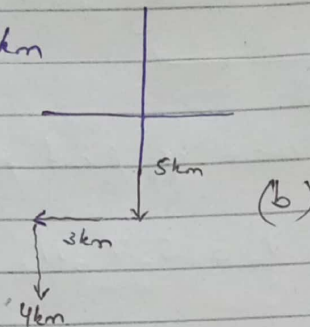 km
5km
(b)
3km
4km